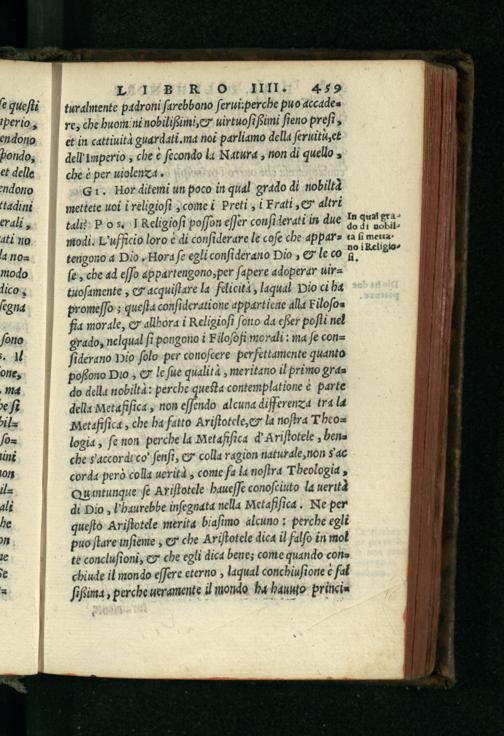 LIBRO IIII. 459
turalmente padroni sarebbono serui: perche puo accade-
re, che huomini nobilißimi, & virtuosißimi sieno presi,
et in cattiuità guardati. ma noi parliamo della seruitù, et
dell'Imperio, che è secondo la Natura, non di quello,
che è per uiolenza.
GI. Hor ditemi un poco in qual grado di nobiltà
mettete uoi i religiosi, come i Preti, i Frati, & altri
tali? Pos. I Religiosi posson esser considerati in due
modi. L'ufficio loro è di considerare le cose che appar-
tengono a Dio. Hora se egli considerano Dio, & le co
se, che ad esso appartengono, per sapere adoperar uir-
tuosamente, & acquistare la felicità, laqual Dio ci ha
promesso; questa consideratione appartiene alla Filoso-
fia morale, & allhora i Religiosi sono da eßer posti nel
grado, nelqual si pongono i Filosofi morali: ma se con-
siderano Dio solo per conoscere perfettamente quanto
poßono Dio, & le sue qualità, meritano il primo gra-
do della nobiltà: perche questa contemplatione è parte
della Metafisica, non essendo alcuna differenza tra la
Metafisica, che ha fatto Aristotele, & la nostra Theo-
logia, se non perche la Metafisica d'Aristotele, ben-
che s'accordi co' sensi, & colla ragion naturale, non s'ac
corda però colla uerità, come fa la nostra Theologia,
Quantunque se Aristotele hauesse conosciuto la uerità
di Dio, l'haurebbe insegnata nella Metafisica. Ne per
questo Aristotele merita biasimo alcuno: perche egli
puo stare insieme, & che Aristotele dica il falso in mol
te conclusioni, & che egli dica bene; come quando con-
chiude il mondo essere eterno, laqual conchiusione è fal
sißima, perche ueramente il mondo ha hauuto princi-
In qual gra-
do di nobil-
tà si metta-
no i Religio-
si.
se questi
mperio,
endono
pondo,
et delle
endono
ttadini
erali,
tati no
la no-
modo
dico,
segna
sono
s. Il
one,
ma
he si
bil-
so-
mini
non
il-
ali
he
on
ne
Se